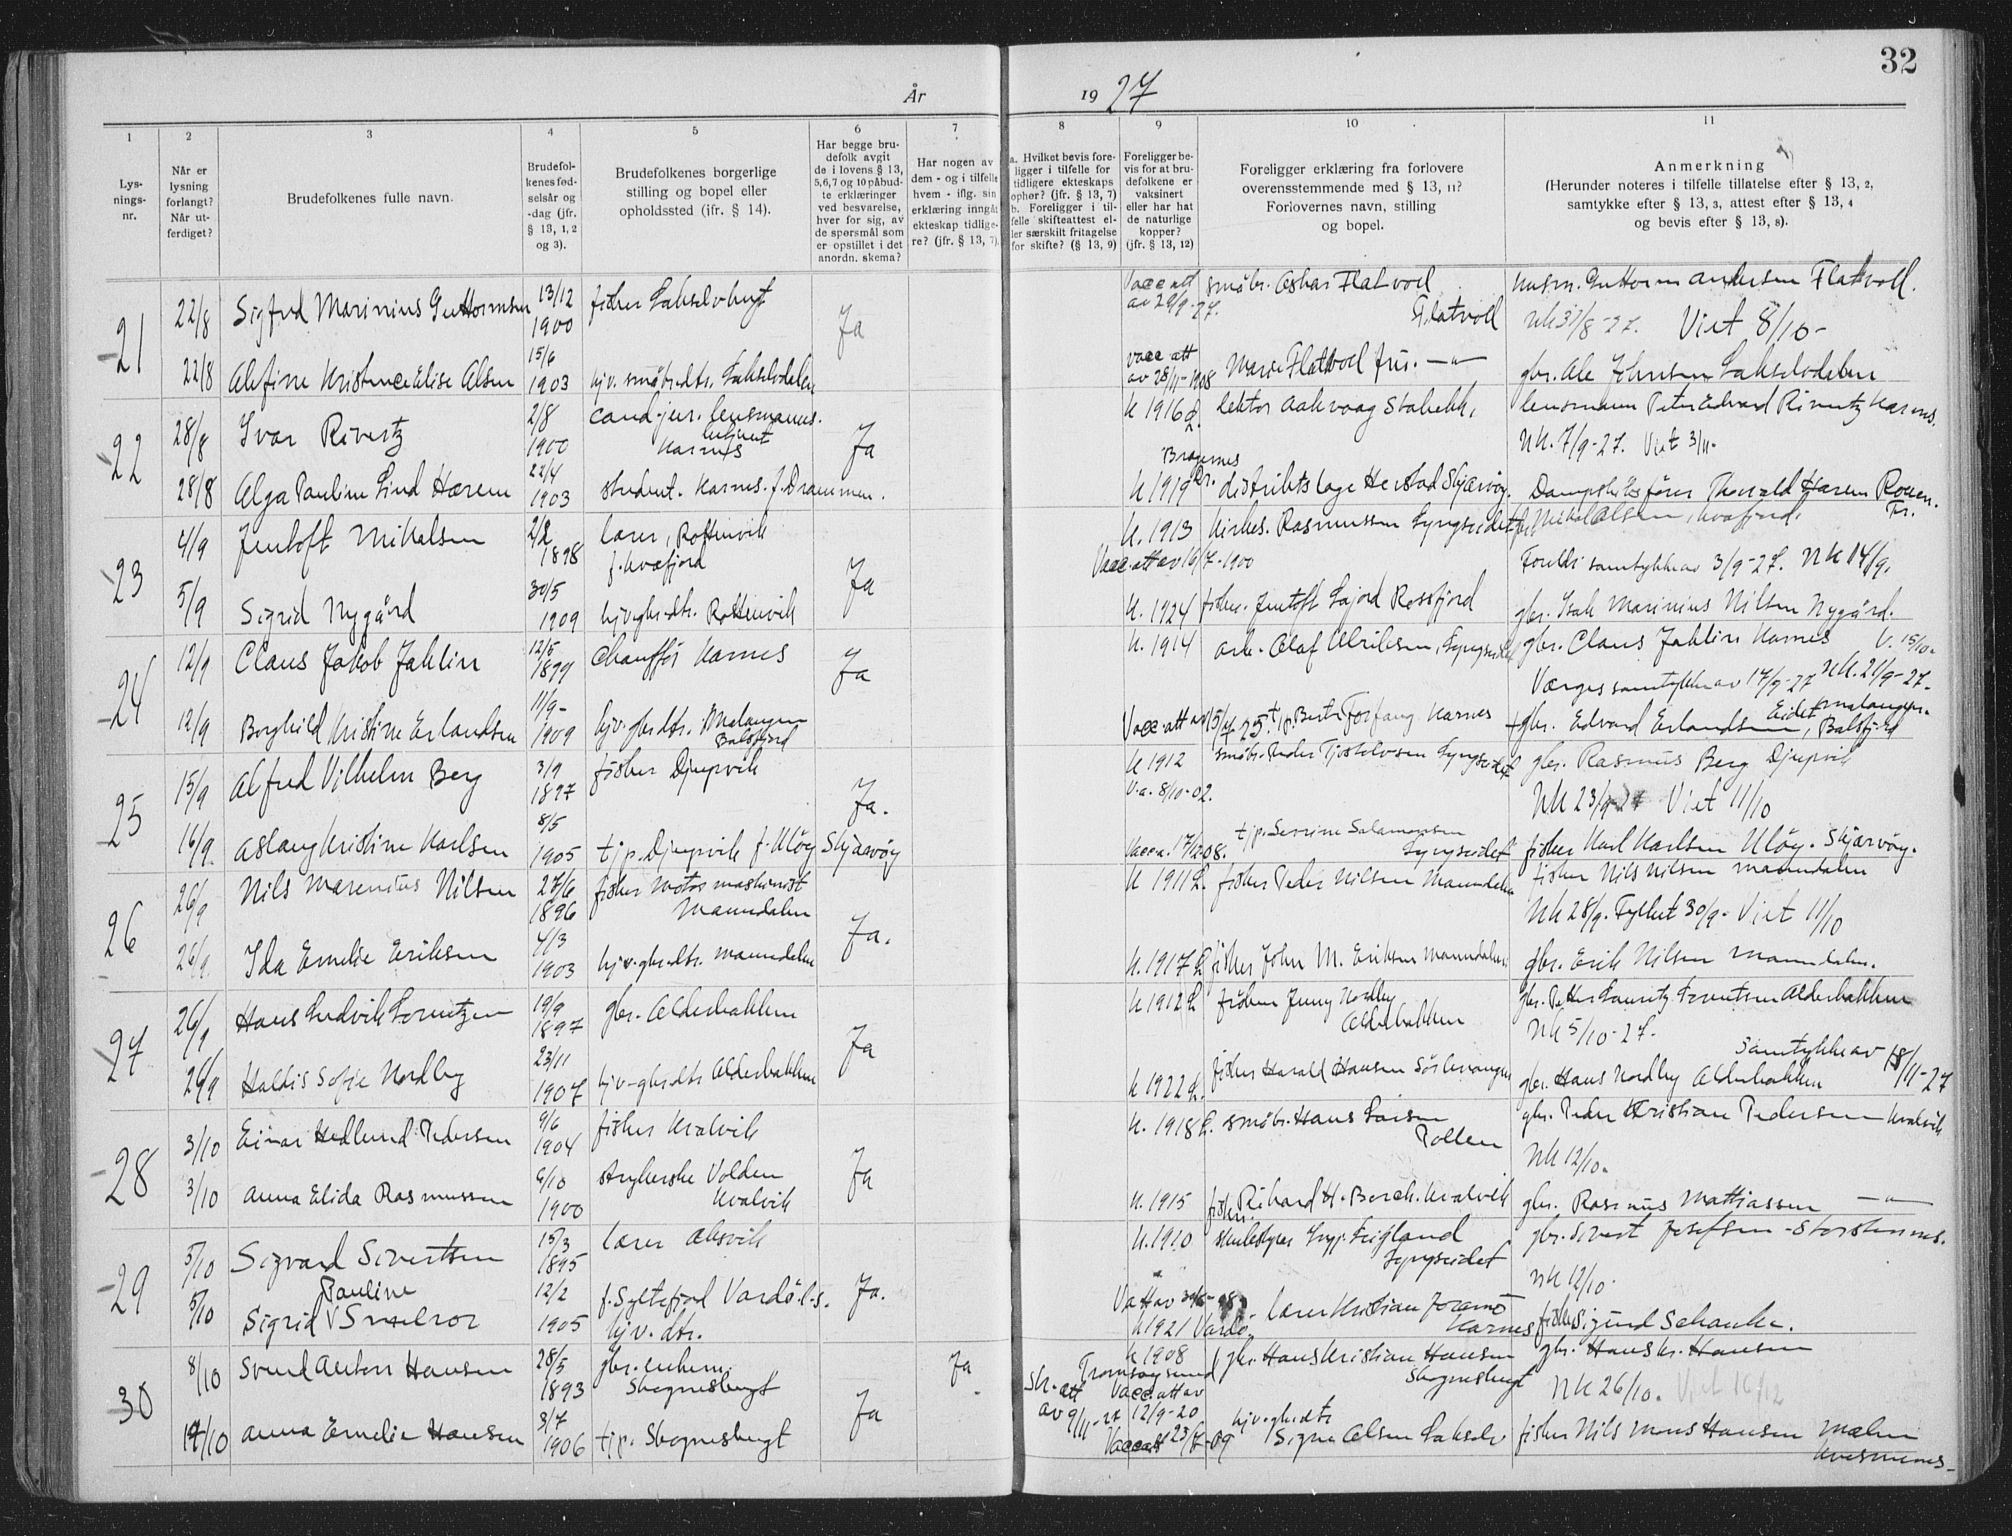 32
År 1927
1 2 3 4 5 6 7 8 9 10 11
Lysningsnr.
Når er lysning forlangt? Når utferdiget?
Brudefolkenes fulle navn.
Brudefolkenes fødselsår og -dag (jfr. § 13, 1, 2 og 3).
Brudefolkenes borgerlige stilling og bopel eller opholdssted (ifr. § 14).
Har begge brudefolk avgit de i lovens § 13, 5,6,7 og 10 påbudte erklæringer ved besvarelse, hver for sig, av de spørsmål som er opstillet i det anordn. skema?
Har nogen av dem - og i tilfelle hvem - iflg. sin erklæring inngåt ekteskap tidligere? (jfr. § 13, 7).
a. Hvilket bevis foreligger i tilfelle for tidligere ekteskaps ophør? (jfr. § 13, 7) b. Foreligger i tilfelle skifteattest eller særskilt fritagelse for skifte? (§ 13, 9)
Foreligger bevis for at brudefolkene er vaksinert eller har hat de naturlige kopper? (jfr. § 13, 12)
Foreligger erklæring fra forlovere overensstemmende med § 13, 11? Forlovernes navn, stilling og bopel.
Anmerkning (Herunder noteres i tilfelle tillatelse efter § 13, 2, samtykke efter § 13, 3, attest efter § 13, 4 og bevis efter § 13, 8).
21 22/8 Sigfred Marinius Guttormsen 13/12 1900 fisker Lakselvbugt Ja Vacc att av 29/9-27. småbr. Oskar Flatvoll Flatvoll husm. Guttorm Andersen Flatvoll.
Nk 31/8-27. Viet 8/10-
22/8 Alefine Kristence Elise Olsen 15/6 1903 hjv. småbr.dtr. Lakselvdalen vacc att av 28/11-1908 Marie Flatvoll fru. —"— gbr. Ole Johnsen Lakselvdalen
22 28/8 Ivar Rivertz 2/8 1900 cand. jur. lensmanns. Karnes Ja K 1916 lektor Aakvaag Stabekk, lensmann Peter Edvard Rivertz Karnes.
Nk. 7/9-27. Viet 3/11-
28/8 Olga Pauline Lind Harem 22/4 1903 student. Karnes. f. Drammen. Bragernes K 1919 Dr. distriktslæge Herstad Skjærvøy. Dampskibsfører Thorvald Harem Rouen. Fr.
23 4/9 Jentoft Mikalsen 2/2 1898 lærer, Rottenvik f. Kvæfjord Ja K. 1913 kirkes. Rasmussen Lyngseidet Mikal Olsen, Kvæfjord.
Vacc. att av 16/7-1900 samtykke av 3/9-27. Nk 14/9.
5/9 Sigrid Nygård 30/5 1909 hjv. gbr.dtr. Rottenvik K. 1924 fisker. Jentoft Lajord Rossfjord gbr. Isak Marinius Nilsen Nygård.
24 12/9 Claus Jakob Jahlin 12/5 1899 Chauffør Karnes Ja K. 1914 arb. Olaf Ulriksen, Lyngseidet gbr. Claus Jahlin Karnes V. 15/10-
Værges samtykke av 17/9-27 Nk. 21/9-27-
12/9 Borghild Kristine Erlandsen 11/9- 1909 hjv. gbr.dtr. Malangen Balsfjord Vacc. att av 15/7-25. tjp. Berte Forfang Karnes gbr. Edvard Erlandsen, Eidet Malangen. Balsfjord
25 15/9 Alfred Vilhelm Berg 3/9 1897 fisker Djupvik Ja. K 1912 V.a. 8/10-02. småbr. Peder Lyngseidet gbr. Rasmus Berg Djupvik
Nk 23/9-27 Viet 11/10
16/9 Aslaug Kristine Karlsen 8/5 1905 tjp. Djupvik f. Uløy Skjærvøy Vacc a. 17/12 08. tjp. Serine Salamonsen Lyngseidet fisker Karl Karlsen Uløy. Skjærvøy.
26 26/9 Nils Marenius Nilsen 27/6 1896 fisker motor maskinist Manndalen Ja. K 1911 L. fisker Peder Nilsen Manndalen fisker Nils Nilsen Manndalen
Nk 28/9. Fylket 30/9- Viet 11/10
26/9 Ida Emelie Eriksen 4/3 1903 hjv. gbr.dtr. Manndalen K. 1917 L fisker John M. Eriksen Manndalen. gbr. Erik Nilsen Manndalen.
27 26/9 Hans Ludvik Lorentzen 19/9 1897 gbr. Olderbakken Ja K 1912 L fisker Jenny Nordby Olderbakken gbr. Petter Lauritz Lorentsen Olderbakken
Nk 5/10-27- Samtykke av 18/11-27
26/9 Haldis Sofie Nordby 23/11 1907 hjv. gbr.dtr. Olderbakken K 1922 L. fisker Harald Hansen Sørlenangen gbr. Hans Nordby Olderbakken
28 3/10 Einar Hedlund Pedersen 9/6 1904 fisker Kvalvik Ja K. 1918 L. småbr. Hans Larsen Pollen gbr. Peder Kristian Pedersen Kvalvik
Nk 12/10.
3/10 Anna Elida Rasmussen 6/10 1900 strykerske Volden Kvalvik K. 1915 fisker Rikard H. Borch. Kvalvik gbr. Rasmus Mattiassen —"—
29 5/10 Sigvard Sivertsen 15/3 1895 lærer Oksvik Ja. K. 1910 skulestyrer Lyngseidet gbr. Sivert Josefsen - Storstennes.
Nk 12/10.
5/10 Sigrid Pauline Smelror 12/2 1905 f. Syltefjord Vardø l.s. hjv. dtr. K 1921 Vardø lærer Kristian Karnes fisker Sigurd Schanke.
30 8/10 Svend Anton Hansen 28/5 1893 gbr. enkem. Skognesbugt Ja Ja Sk. att av 9/11-27 K 1908 Tromsøysund Vacc. att av 12/9-20 gbr. Hans Kristian Hansen Skognesbugt gbr. Hans Kr. Hansen
Nk 26/10. Viet 16/12
14/10 Anna Emelie Hansen 3/7 1906 tjp. Skognesbugt Vacc att 23/7-09 hjv. gbr.dtr. Signe Olsen Lakselv fisker Nils Mons Hansen Malen Kvesmenes-